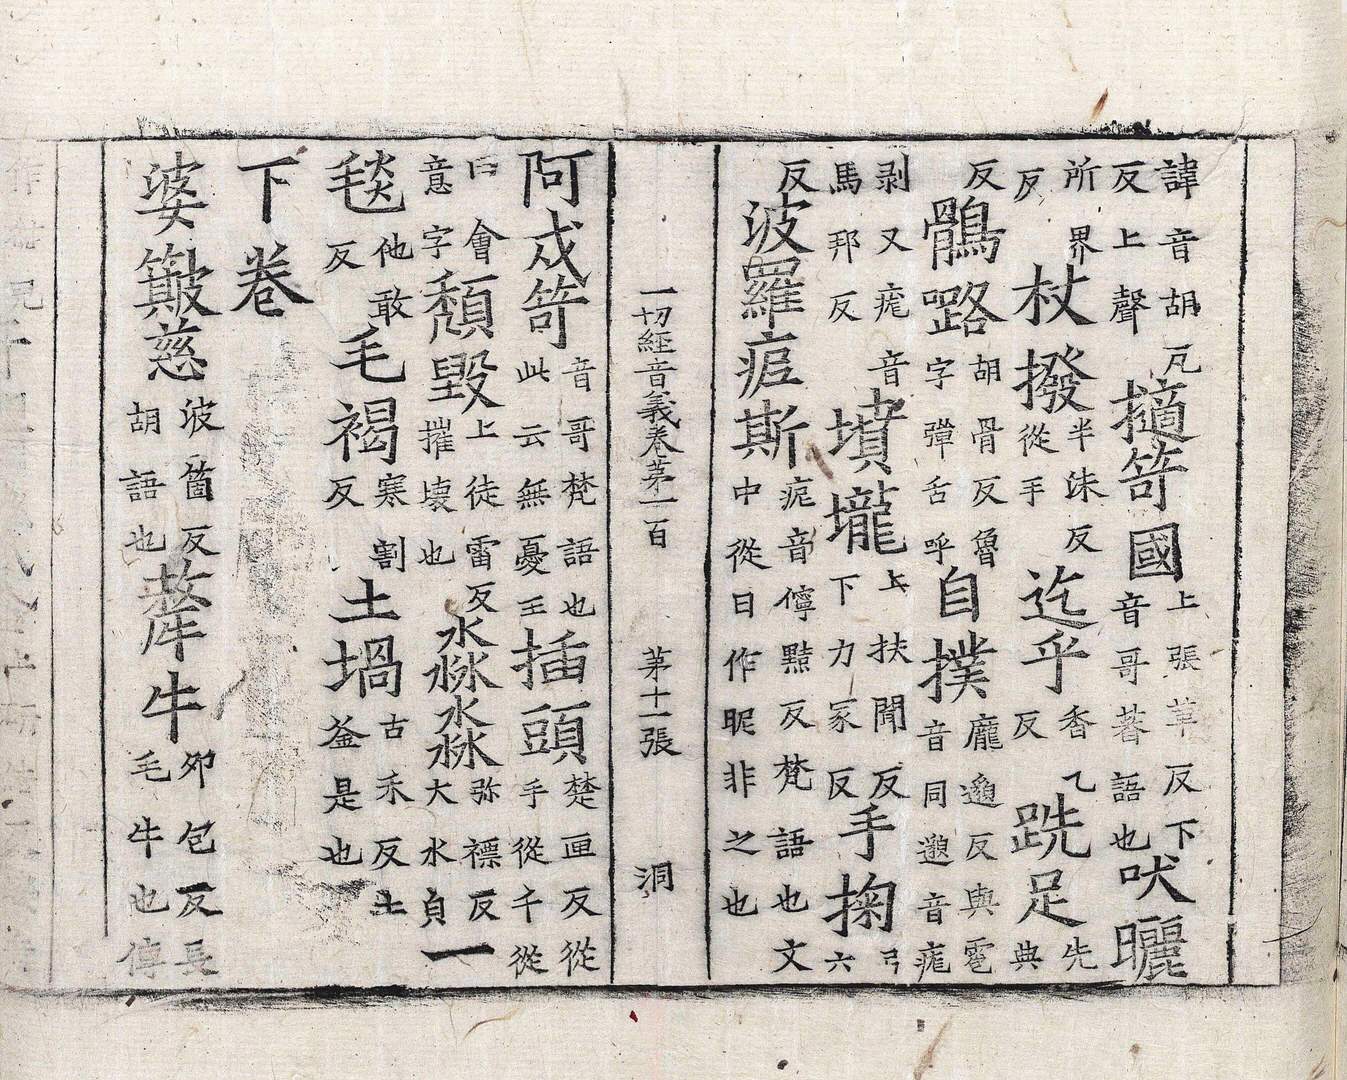 諱音胡瓦反上聲擿笴國上張革反下音哥蕃語也吠曬
所界反杖撥半沬反從手迄乎香乙反跣足先典
反鶻𡀔胡骨反魯字彈舌呼自撲龐邈反與雹音同邈音尨
剥又尨音馬邦反墳壠上扶聞反下力冢反手掬弓六
反波羅痆斯痆音儜黠反梵語也文中從日作昵非之也
一切經音義卷苐一百 苐十一張 洞
阿戍笴音哥梵語也此云無憂王插頭楚匝反從手從千從
臼會意字頹毀上徒雷反摧壞也淼淼弥褾反大水皃一
毯他敢反毛褐寒割反土堝古禾反土釜是也
下卷
婆簸慈波箇反胡語也犛牛卯包反長毛牛也傳